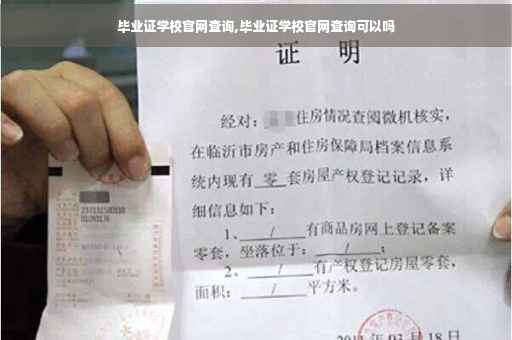 毕业证学校官网查询,毕业证学校官网查询可以吗
证 明
经对: 住房情况查阅微机核实,
在临沂市房产和住房保障局档案信息系
统内现有 零 套房屋产权登记记录,详
细信息如下:
1、 / 有商品房网上登记备案
零套,坐落位于: / ;
2、 / 有产权登记房屋零套,
面积: / 平方米。